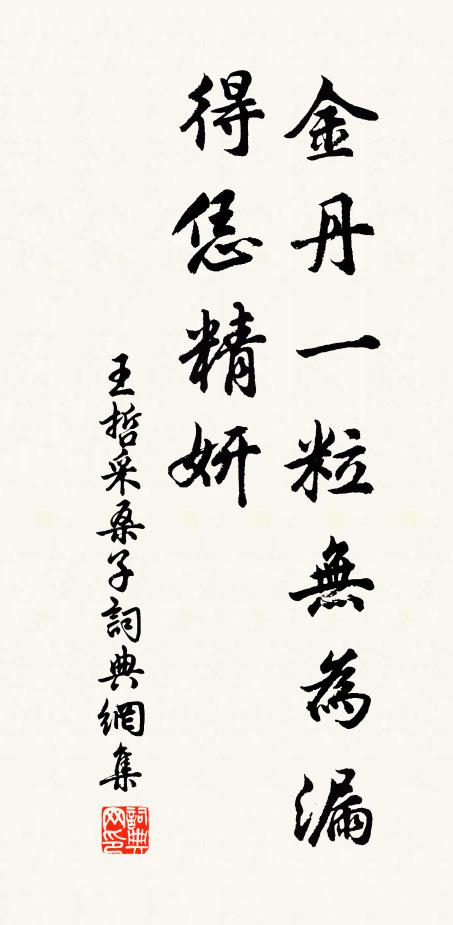 金丹一粒無為漏
得恁精妍
王哲采桑子詞典網集
詞典网印